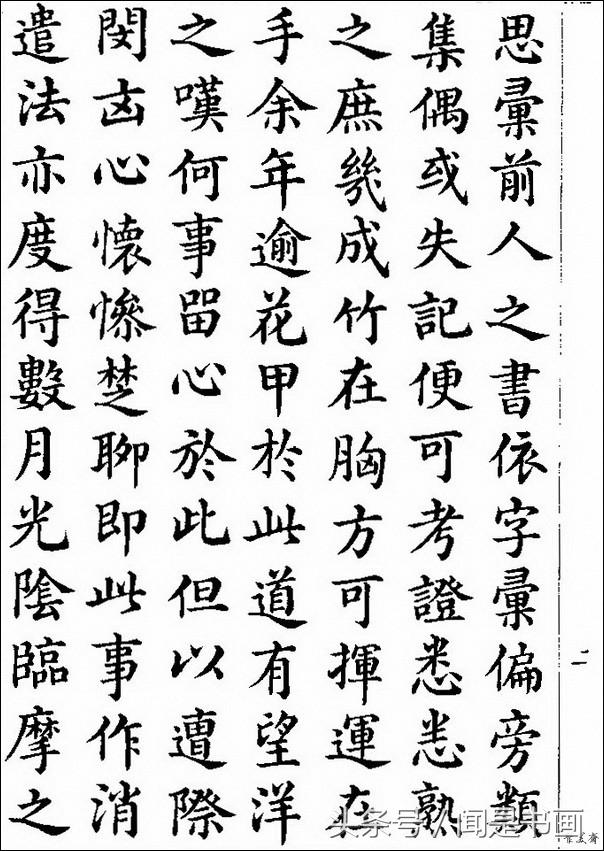 思彙前人之書依字彙偏旁類
集偶或失記便可考證悉悉熟
之庶幾成竹在胸方可揮運在
手余年逾花甲於此道有望洋
之嘆何事留心於此但以遭際
閔凶心懷慘楚聊即此事作消
遣法亦度得數月光陰臨摩之
二
头条号/闻是书画